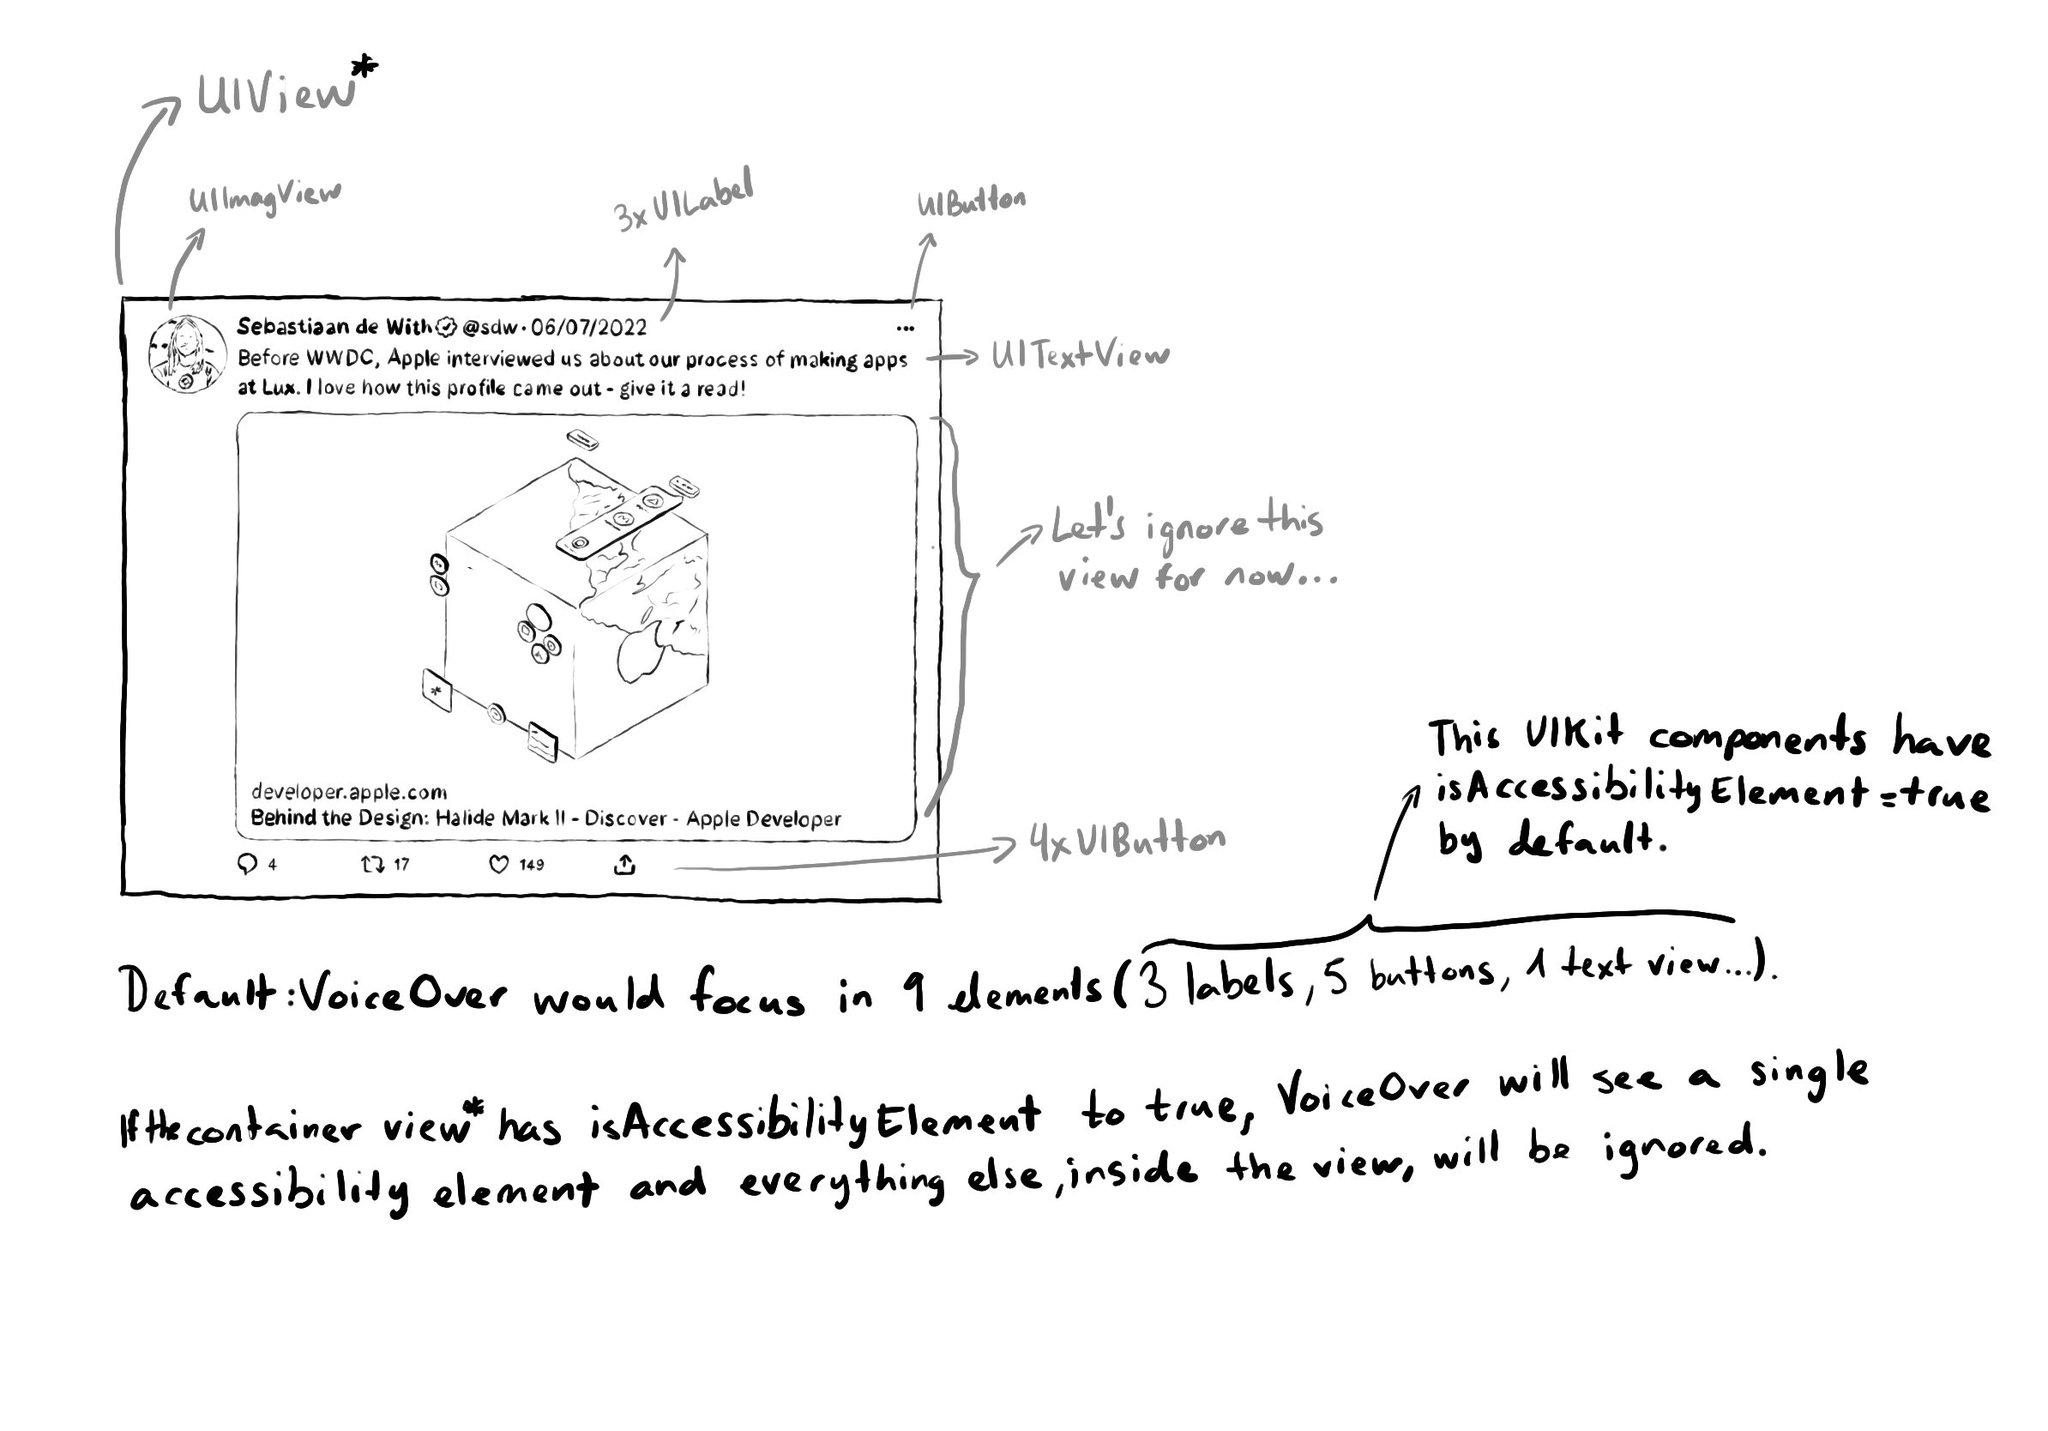 UIView*
UIImagView
3xUILabel
UIButton
Sebastiaan de With @sdw · 06/07/2022
...
Before WWDC, Apple interviewed us about our process of making apps
at Lux. I love how this profile came out - give it a read!
UITextView
Let's ignore this
view for now...
developer.apple.com
Behind the Design: Halide Mark II - Discover - Apple Developer
4 17 149
4xUIButton
This UIKit components have
isAccessibilityElement=true
by default.
Default: VoiceOver would focus in 9 elements (3 labels, 5 buttons, 1 text view...).
If the container view* has isAccessibilityElement to true, VoiceOver will see a single
accessibility element and everything else, inside the view, will be ignored.